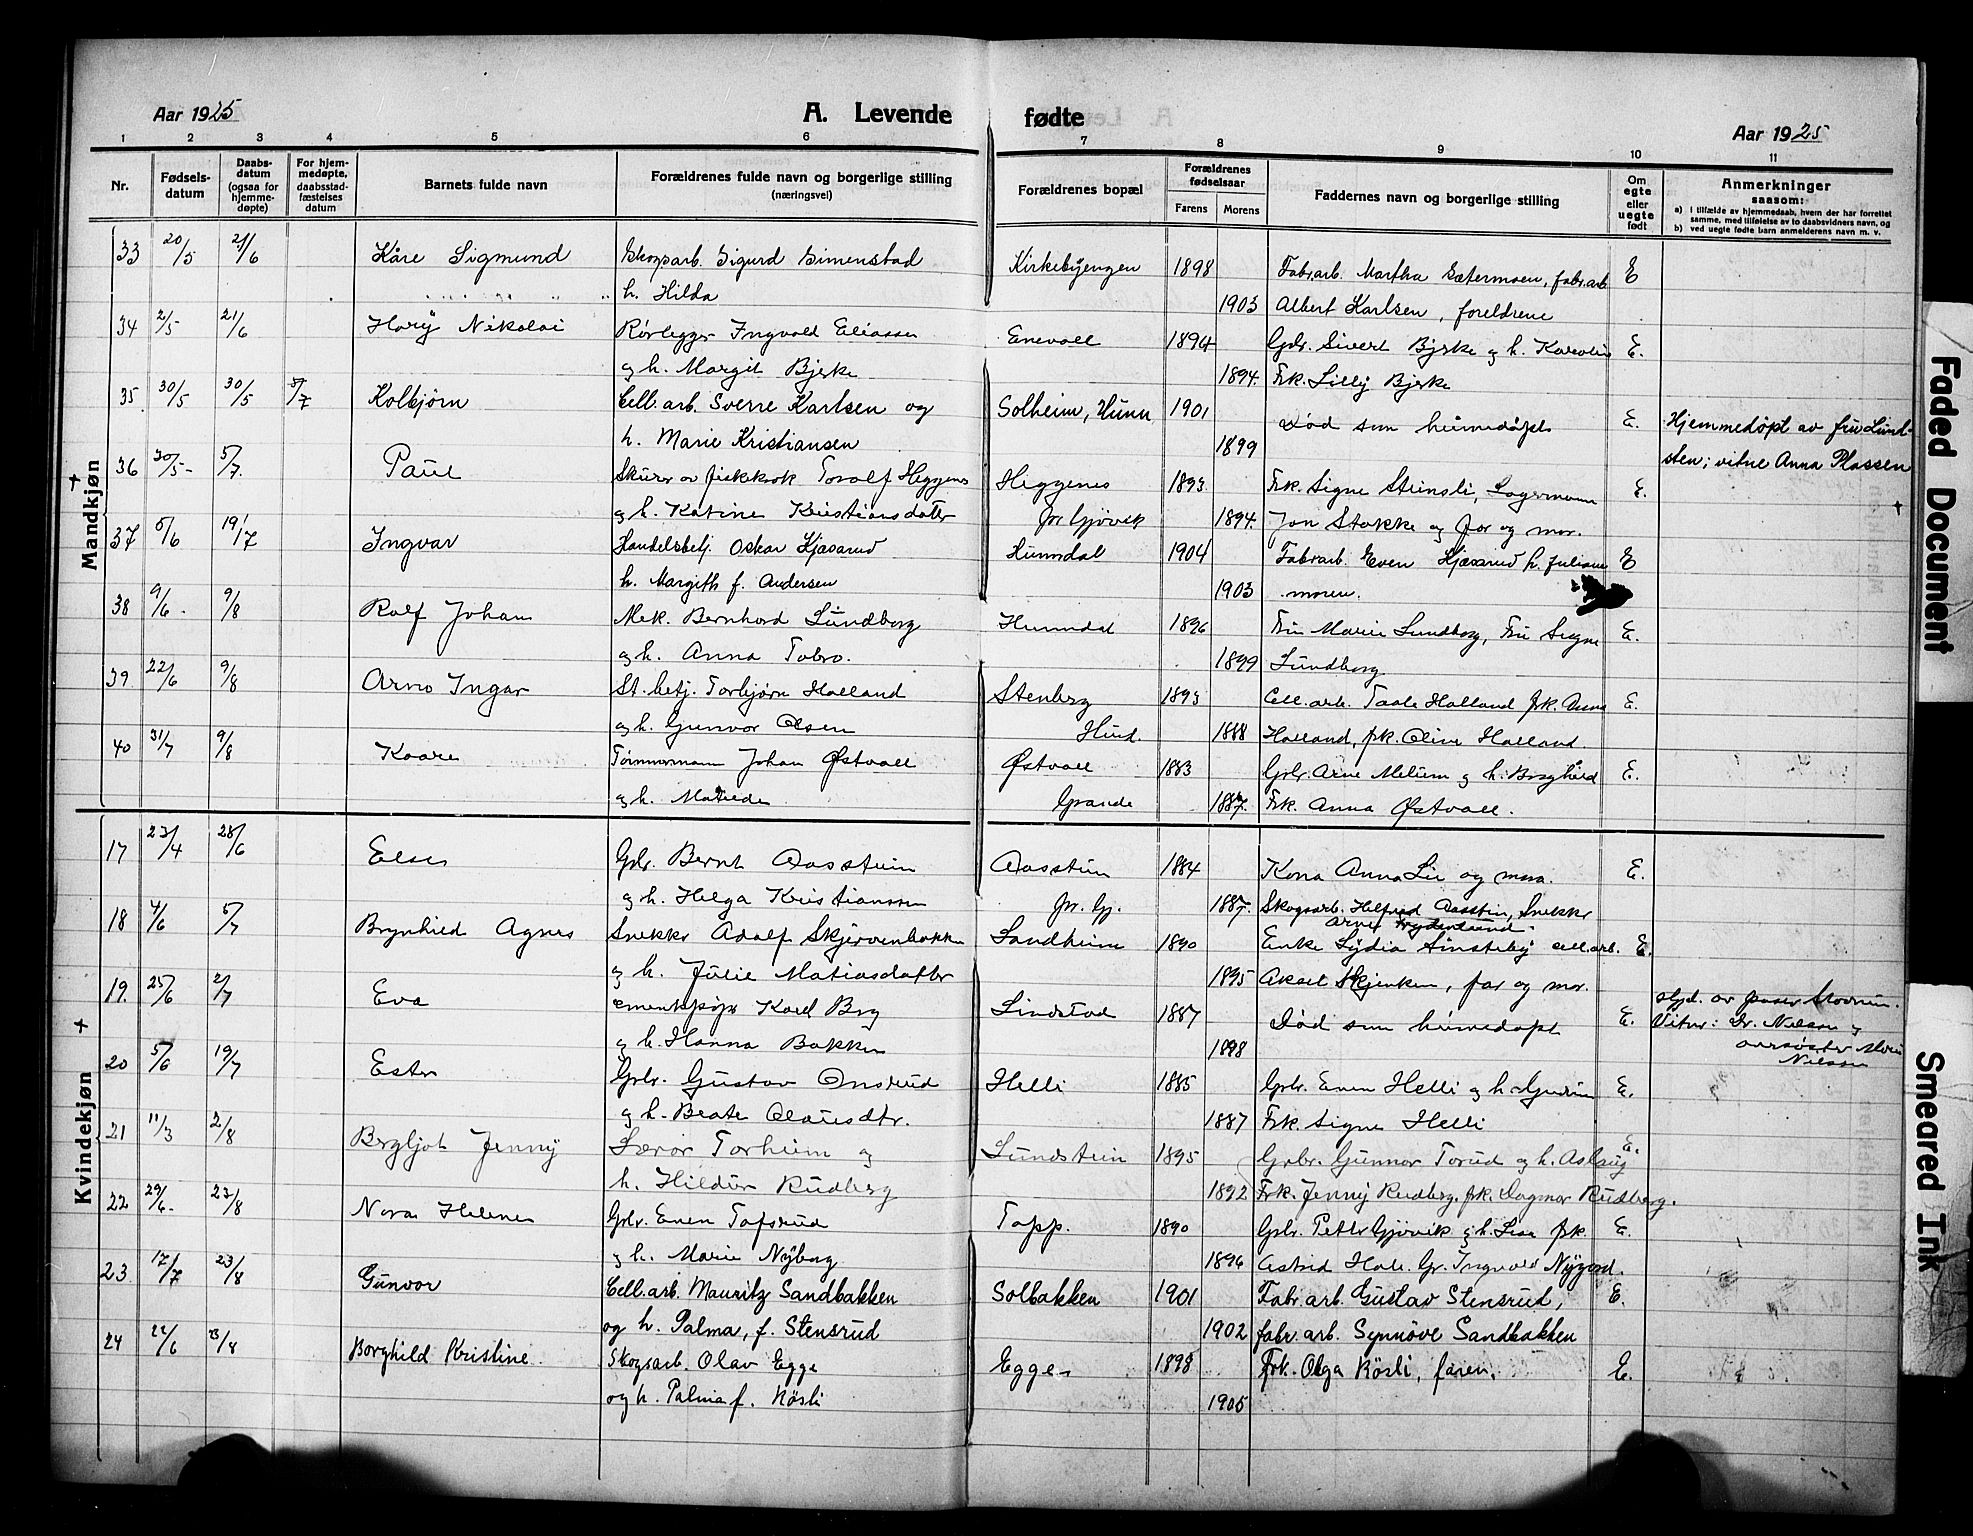 Aar 1925
A. Levende fødte
Aar 1925
1 2 3 4 5 6 7 8 9 10 11
Nr.
Fødsels-
datum
Daabs-
datum
(ogsaa for
hjemme-
døpte)
For hjem-
medøpte,
daabsstad-
fæstelses
datum
Barnets fulde navn
Forældrenes fulde navn og borgerlige stilling
(næringsvei)
Forældrenes bopæl
Forældrenes
fødselsaar
Farens Morens
Faddernes navn og borgerlige stilling
Om
egte
eller
uegte
født
Anmerkninger
saasom:
a) i tilfælde av hjemmedaab, hvem der har forrettet
samme, med tilføielse av to daabsvidners navn, og
b) ved uegte fødte barn anmelderens navn m. v.
Mandkjøn
33 20/5 21/6 Kåre Sigmund Skogsarb. Sigurd Simenstad Kirkebyengen 1898 Fabr.arb. Martha Sætermoen, fabr.arb. E
h. Hilda 1903 Albert Karlsen, foreldrene
34 2/5 21/6 Harry Nikolai Rørlegger Ingvald Eliassen Enevoll 1894 Gbr. Sivert Bjerke og h. Karoline E.
og h. Margit Bjerke 1894. Frk. Lilly Bjerke
35 30/5 30/5 5/7 Kolbjørn Cell. arb. Sverre Karlsen og Solheim, Hunn 1901 Død som heimedøpt E. Hjemmedøpt av fru Lund-
h. Marie Kristiansen 1899 sten; vitne Anna Plassen
36 30/5 5/7 Paul Skurer av fiskkrok Toralf Heggenes Heggenes 1893 Frk. Signe Steinsli, Lagermann E.
og h. Katrine Kristiansdatter pr. Gjøvik 1894. Jon Stokke og far og mor.
37 5/6 19/7 Ingvar Handelsbetj. Oskar Kjæsrud Hunndal 1904 Fabrarb. Even Kjæsrud h. Juliane E
h. Margith f. Andersen 1903 moren.
38 9/6 9/8 Rolf Johan Mek. Bernhard Lundborg Hunndal 1896 Fru Marie Lundborg, Fru Signe E.
og h. Anna Tobro. 1899 Lundborg
39 22/6 9/8 Arne Ingar St. betj. Torbjørn Halland Stenberg 1893 Cell. arb. Taale Halland frk. Anna E.
og h. Gunvor Olsen Hund. 1888 Halland, frk. Oline Halland.
40 31/7 9/8 Kaare Tømmermann Johan Østvoll Østvoll 1883 Gbr. Arne Melum og h. Borghild E.
og h. Matilde Grande 1887. Frk. Anna Østvoll.
Kvindekjøn
17 23/4 28/6 Else Gbr. Bernt Aasstein Aasstein 1884 Kona Anna Lie og mora. E.
og h. Helga Kristiansen pr. Gj. 1887. Skogsarb. Helfred Aasstein, Snekker
Arne Frydenlund.
18 4/6 5/7 Brynhild Agnes Snekker Adolf Skjervenbakken Sandheim 1890 Enke Lydia cell.arb. E.
og h. Julie Matiasdatter 1895 Aksel Skjerken, far og mor.
19. 25/6 2/7 Eva Karl Berg Lindstad 1887 Død som heimedøpt E. av Stovner.
og h. Hanna Bakken 1898 Vitner: Dr. Nielsen og
oversøster Marie
Nielsen
20 5/6 19/7 Ester Gbr. Gustav Onsrud Helli 1885 Gbr. Even Helli og h. Gudrun E.
og h. Beate Olausdtr. 1887 Frk. Signe Helli
21 11/3 2/8 Bergljot Jenny Lærer Torheim og Lundstein 1895 Grbr. Gunnar Torud og h. Aslaug E.
h. Hildur Rudberg 1892 Frk. Jenny Rudberg, frk. Dagmar Rudberg.
22 29/6 23/8 Nora Helene Gbr. Even Tofsrud Topp. 1890 Gbr. Petter Gjøvik og h. Lina frk. E.
og h. Marie Nyborg 1896 Astrid Hol. Gr. Ingvald Nygard.
23 17/7 23/8 Gunvor Cell. arb. Mauritz Sandbakken Solbakken 1901 Fabr. arb. Gustav Stensrud, E.
og h. Palma, f. Stensrud 1902 fabr. arb. Synnøve Sandbakken
24 22/6 23/8 Borghild Kristine. Skogsarb. Olav Egge Egge 1898 Frk. Olga Røsli, faren. E.
og h. Palma f. Røsli 1905
Faded Document
Smeared Ink